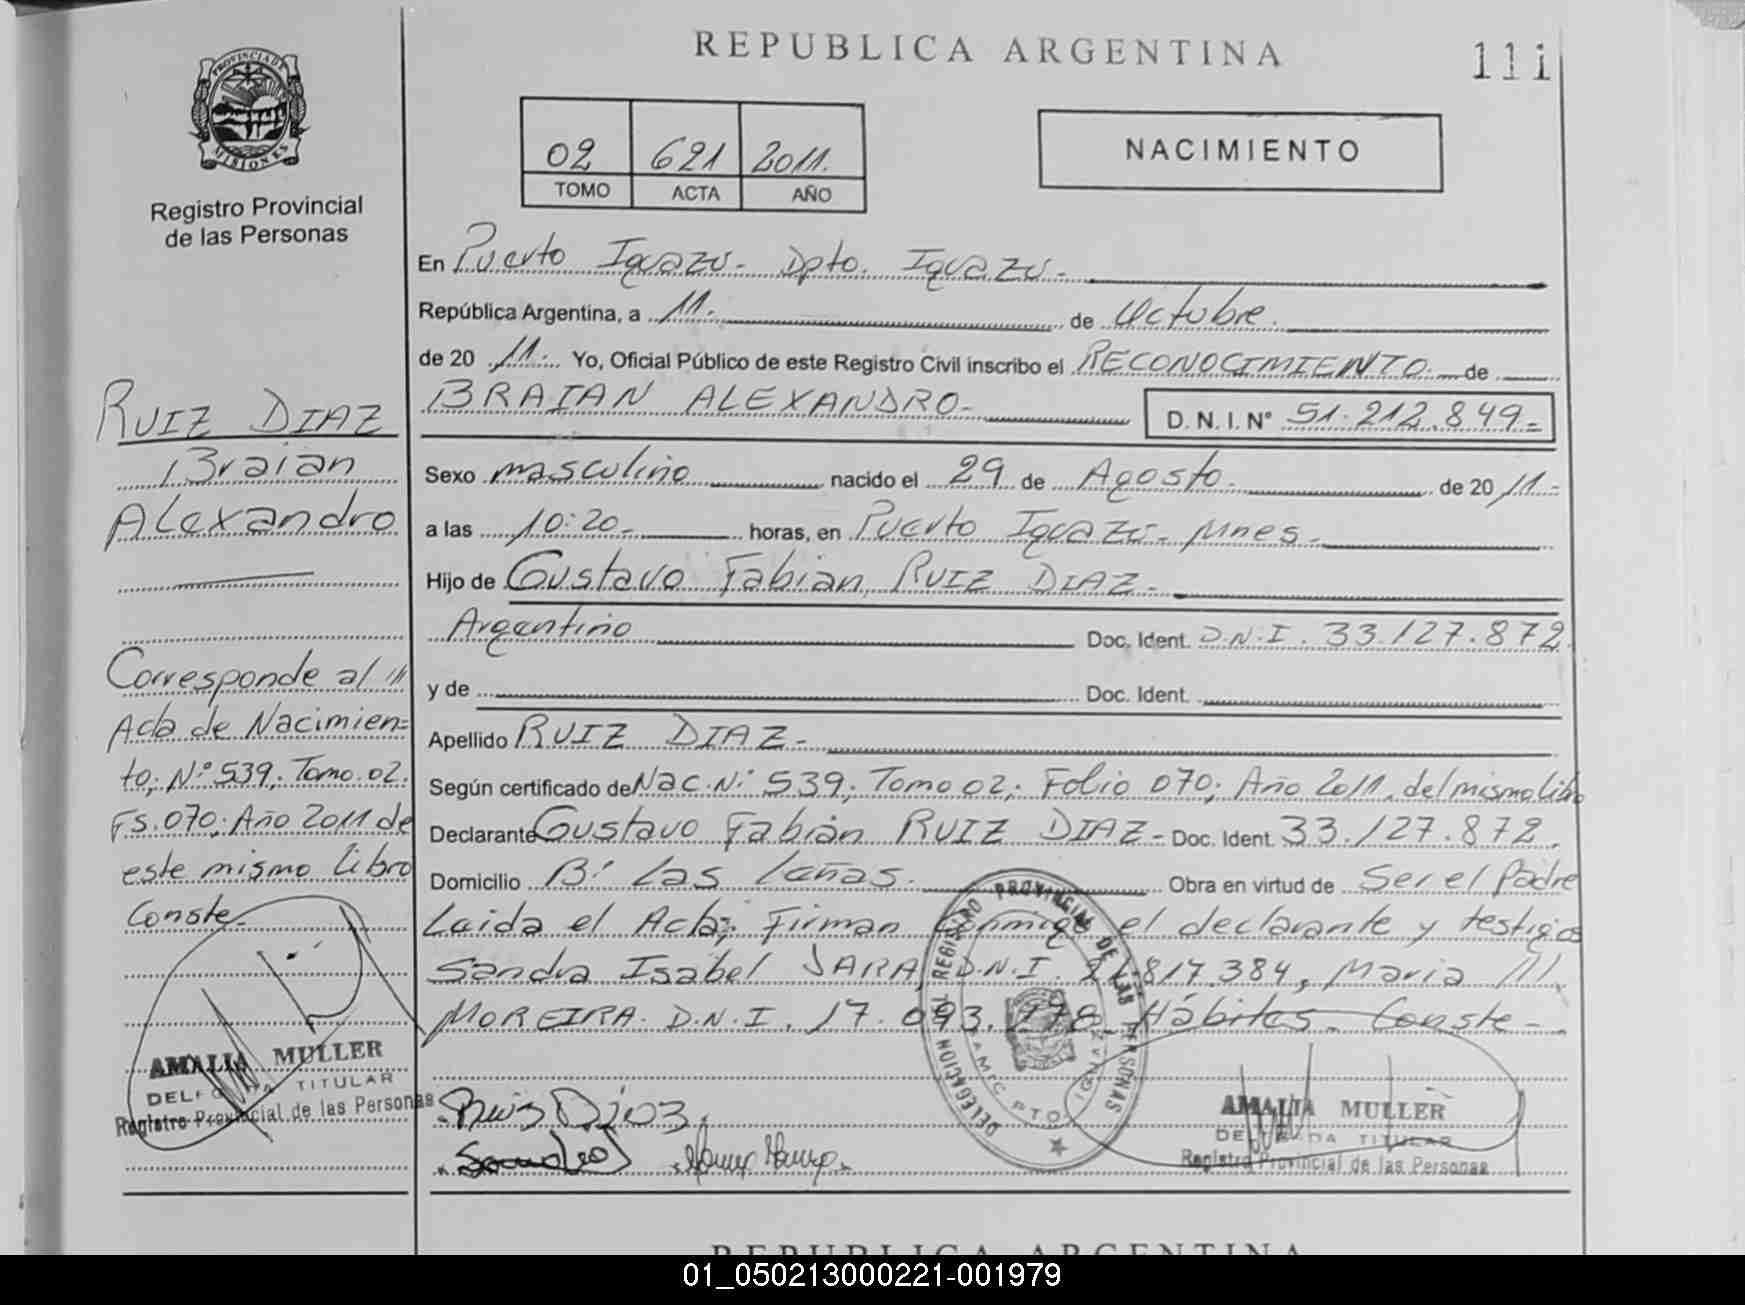 REPUBLICA ARGENTINA
111
PROVINCIA DE
MISIONES
Registro Provincial
de las Personas
02 621 2011.
TOMO ACTA AÑO
NACIMIENTO
En Puerto Iguazú - Dpto. Iguazú -
República Argentina, a 11. de Octubre.
de 20 11. Yo, Oficial Público de este Registro Civil inscribo el RECONOCIMIENTO de
BRAIAN ALEXANDRO - D. N. I. N° 51.212.849 -
Sexo masculino nacido el 29 de Agosto. de 20 11. -
a las 10:20 - horas, en Puerto Iguazú - Mnes -
Hijo de Gustavo Fabián RUIZ DIAZ -
Argentino Doc. Ident. D.N.I. 33.127.872.
y de Doc. Ident.
Apellido RUIZ DIAZ -
Según certificado de Nac. N° 539; Tomo 02; Folio 070; Año 2011, del mismo libro
Declarante Gustavo Fabián RUIZ DIAZ - Doc. Ident. 33.127.872.
Domicilio B° Las Leñas. Obra en virtud de Ser el Padre
Leida el Acta; Firman Conmigo el declarante y testigos
Sandra Isabel JARA, D.N.I. 817.384, Maria
MOREIRA. D.N.I. 17.093. Hábiles. Conste -
Ruis Diaz
AMALIA MULLER
DELEGADA TITULAR
Registro Provincial de las Personas
DELEGACION DEL REGISTRO PROVINCIAL DE LAS PERSONAS
PTO. IGUAZU
RUIZ DIAZ
Braian
Alexandro
Corresponde al
Acta de Nacimien=
to; N° 539; Tomo 02.
FS. 070; Año 2011 de
este mismo libro
Conste -
AMALIA MULLER
DELEGADA TITULAR
Registro Provincial de las Personas
REPUBLICA ARGENTINA
01_050213000221-001979